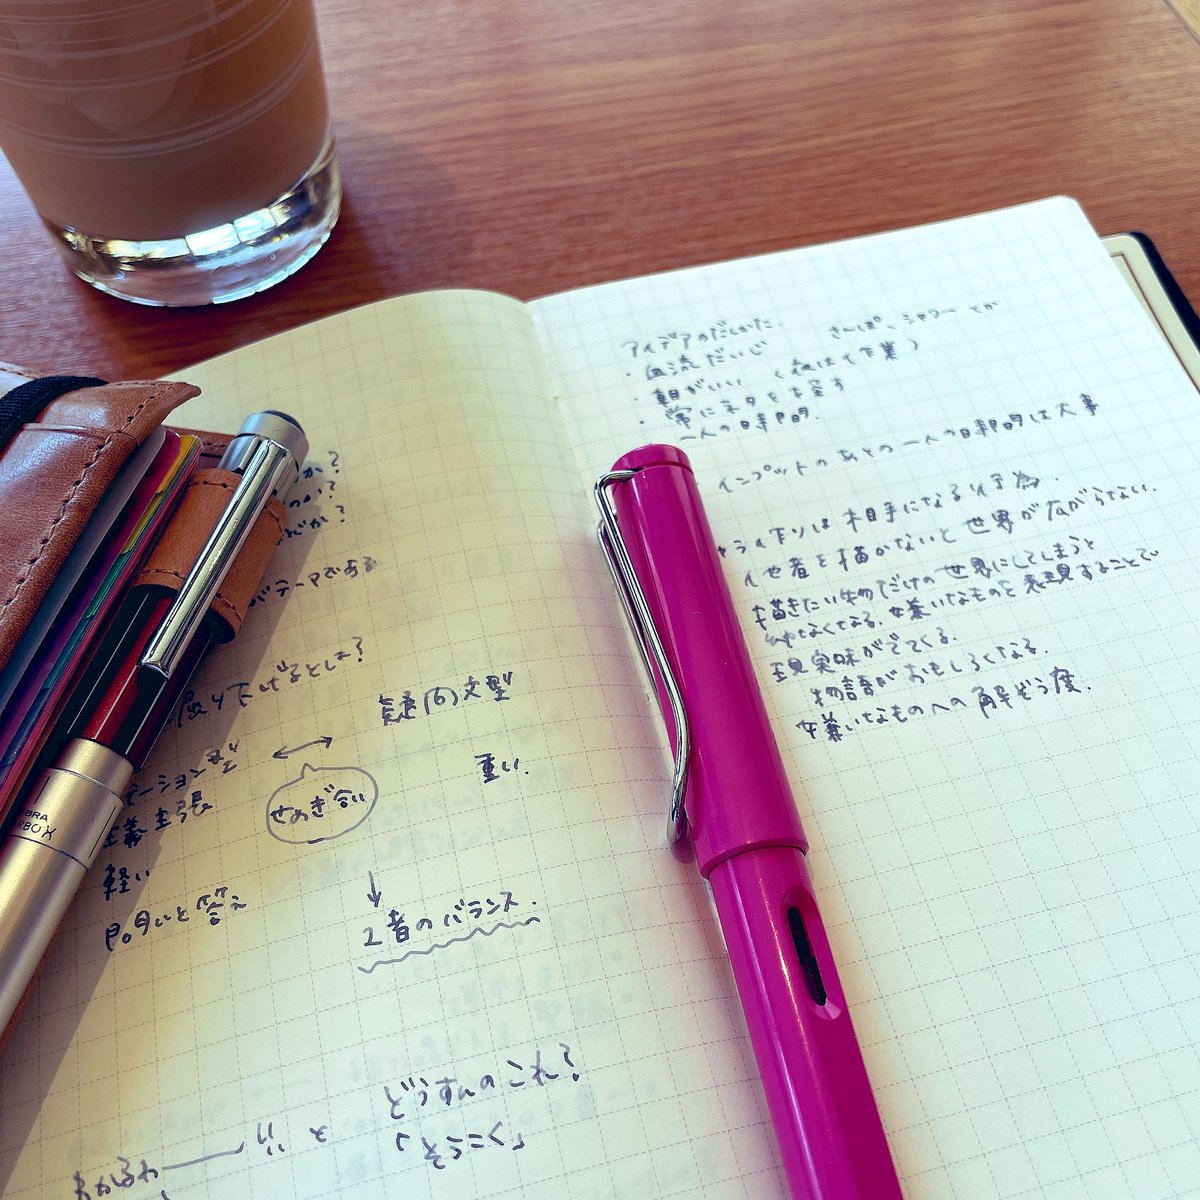 か?
のか?
どか?
がテーマである
掘り下げるとした?
疑問文型
重い.
せめぎ合い
主張
軽い
問いと答え
2者のバランス.
どうすんのこれ?
ZEBRA
アイデアのだしかた.
・血流だいじ さんぽ、シャワーとか
・朝がいい (夜は作業)
・常にネタを探す
・一人の時間.
インプットのあとの一人の時間は大事
キャラ作りは相手になる行為.
他者を描かないと世界が広がらない.
描きたい物だけの世界にしてしまうと
なくなる. 嫌いなものと表現することで
現実味がでてくる.
物語がおもしろくなる.
嫌いなものへの解ぞう度.